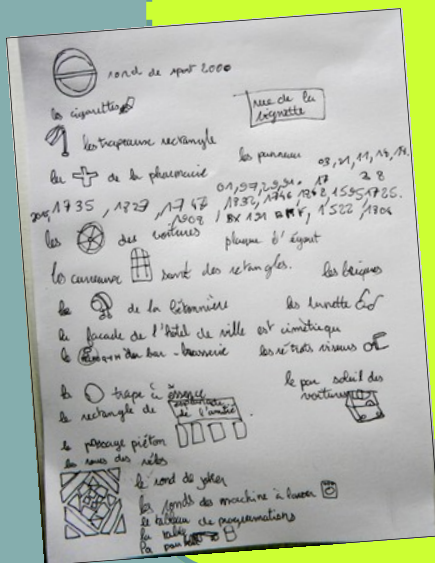 rond de sport 2000
les cigarettes
rue de la
vignette
les trapeaux rectangle
la de la pharmacie
les panneau
03, 21, 11, 18, 19,
01, 97, 29, 91, 17 28
2015, 1735, 1327, 1747 1332, 1746, 1342, 1595 1725.
1908, BX 191 BMK, 1522, 1304
les des voitures
plaque d'égout
les carreaux sont des rectangles.
les briques
la de la bétonnière
les lunette
la façade de l'hôtel de ville est cimétrique
le du bar - brasserie
les rétrots viseurs
la trape à essence
le par soleil des
voitures
le rectangle de
de l'amitié
le passage piéton
les roues des vélos
le rond de joker
les ronds des machine à laver
le tableau de programmations
la table
la